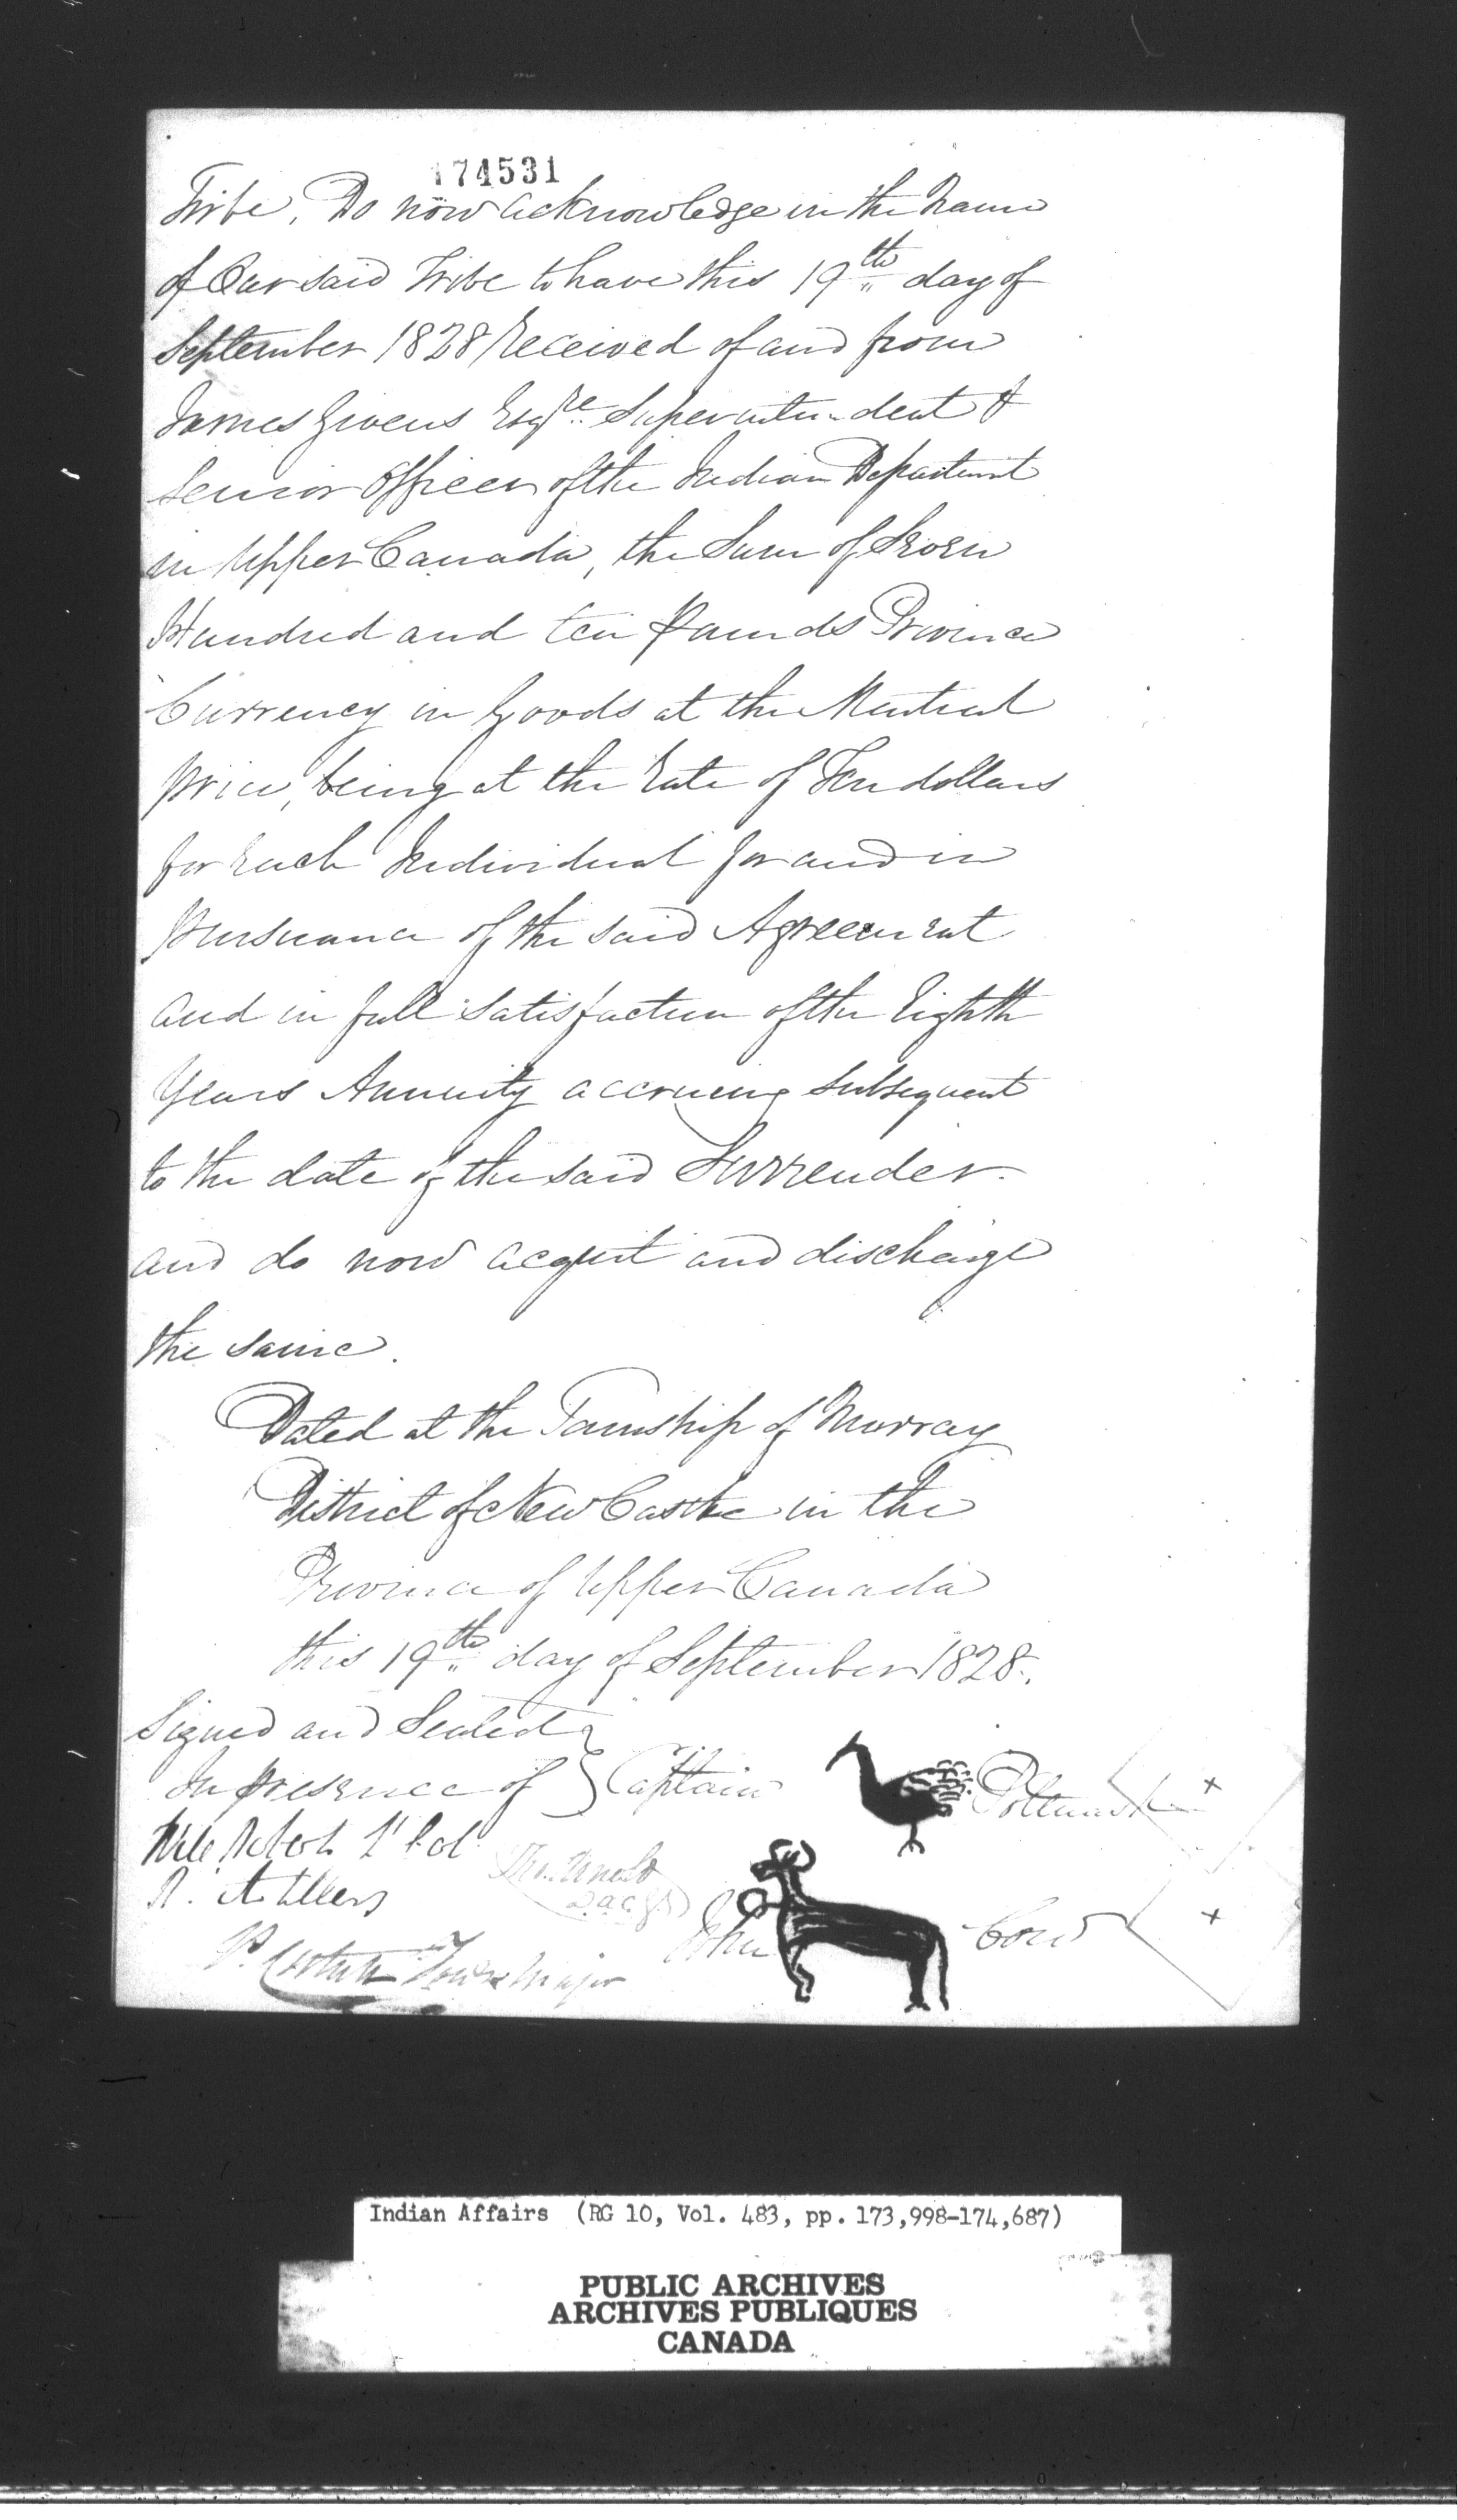 174531
Tribe, Do now acknowledge in the Name
of Our said Tribe to have this 19th day of
September 1828 received of and from
James Givens Esqre Superintendent &
Senior Officer of the Indian Department
in Upper Canada, the Sum of Seven
Hundred and ten Pounds Province
Currency in Goods at the Montreal
price, being at the rate of Ten dollars
for each Individual for and in
pursuance of the said Agreement
and in full satisfaction of the Eighth
Years Annuity accruing subsequent
to the date of the said Surrender.
and do now acquit and discharge
the same.
Dated at the Township of Murray
District of New Castle in the
Province of Upper Canada
this 19th day of September 1828.
Signed and Sealed
In presence of } Captain
Lt Col
R. Artillery
Thos
D.A.C.G.
Town Major
John Cow
x
x
Indian Affairs (RG 10, Vol. 483, pp. 173,998-174,687)
PUBLIC ARCHIVES
ARCHIVES PUBLIQUES
CANADA